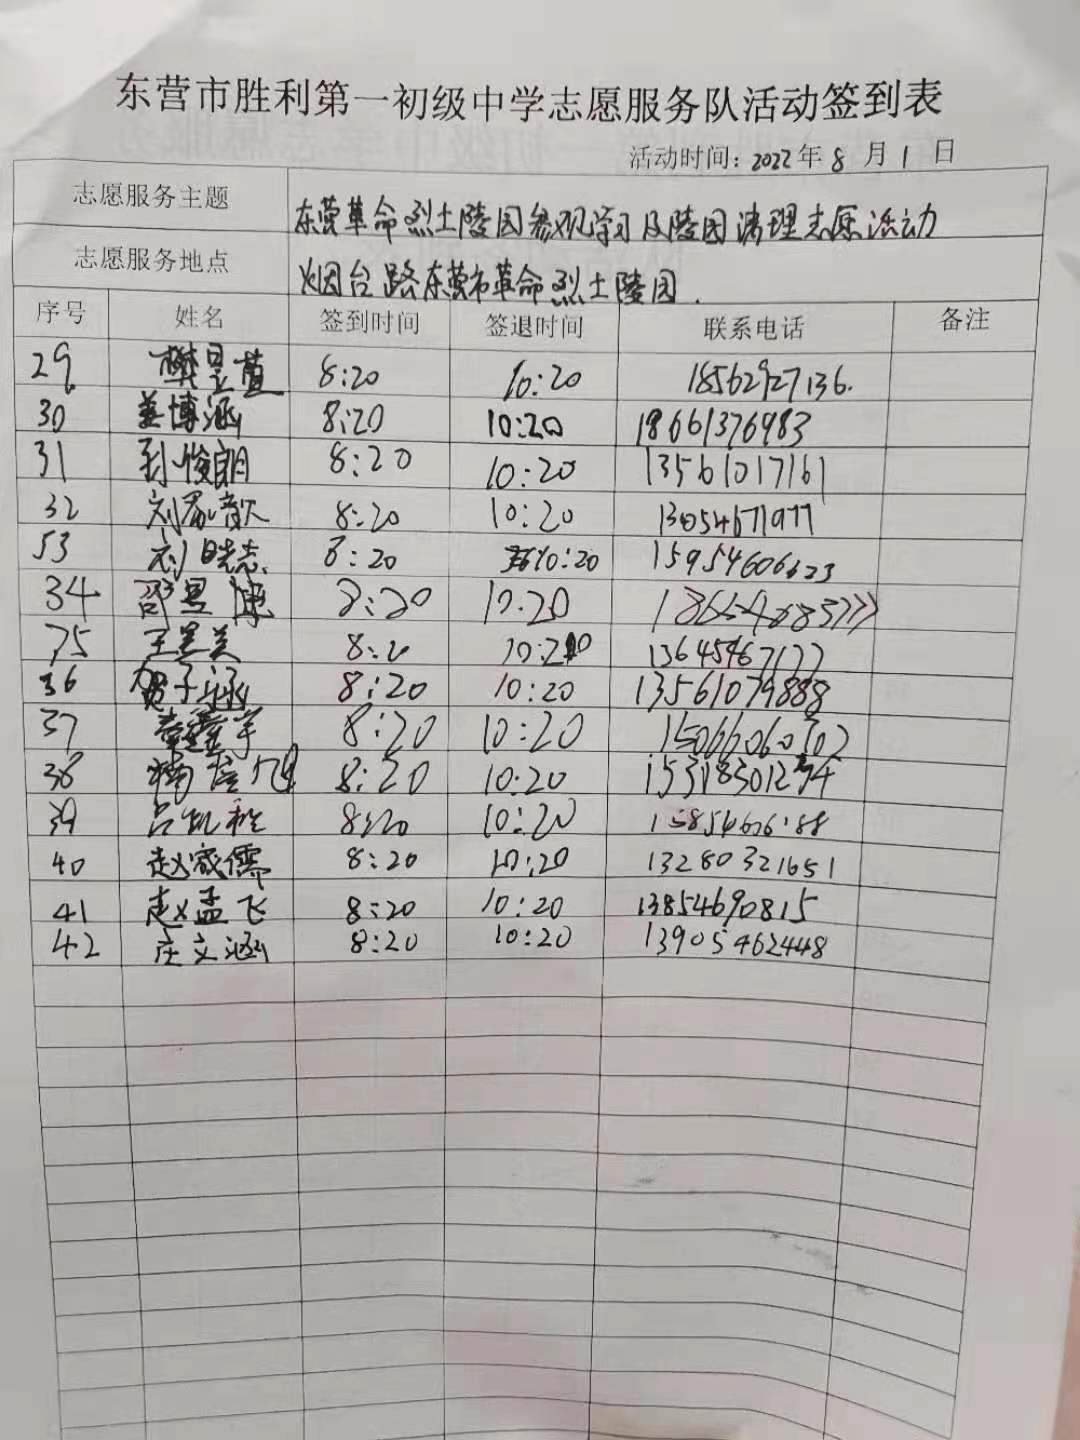 东营市胜利第一初级中学志愿服务队活动签到表
活动时间：2022年8月1日
志愿服务主题 东营革命烈士陵园参观学习及陵园清理志愿活动
志愿服务地点 烟台路东营市革命烈士陵园.
序号 姓名 签到时间 签退时间 联系电话 备注
29 樊昱萱 8:20 10:20 18562927136.
30 姜博涵 8:20 10:20 18661376983
31 孙俊朗 8:20 10:20 13561017161
32 刘家歆 8:20 10:20 13054671977
53 刘晓志 8:20 10:20 15954606623
34 邵昱 8:20 10:20
35 王 8:20 10:20 13645467177
36 贺子涵 8:20 10:20 13561079888
37 鑫宇 8:20 10:20 15066060702
38 8:20 10:20 15318301294
39 吕凯 8:20 10:20
40 赵宬儒 8:20 10:20 13280321651
41 赵孟飞 8:20 10:20 13854690815
42 庄文涵 8:20 10:20 13905462448